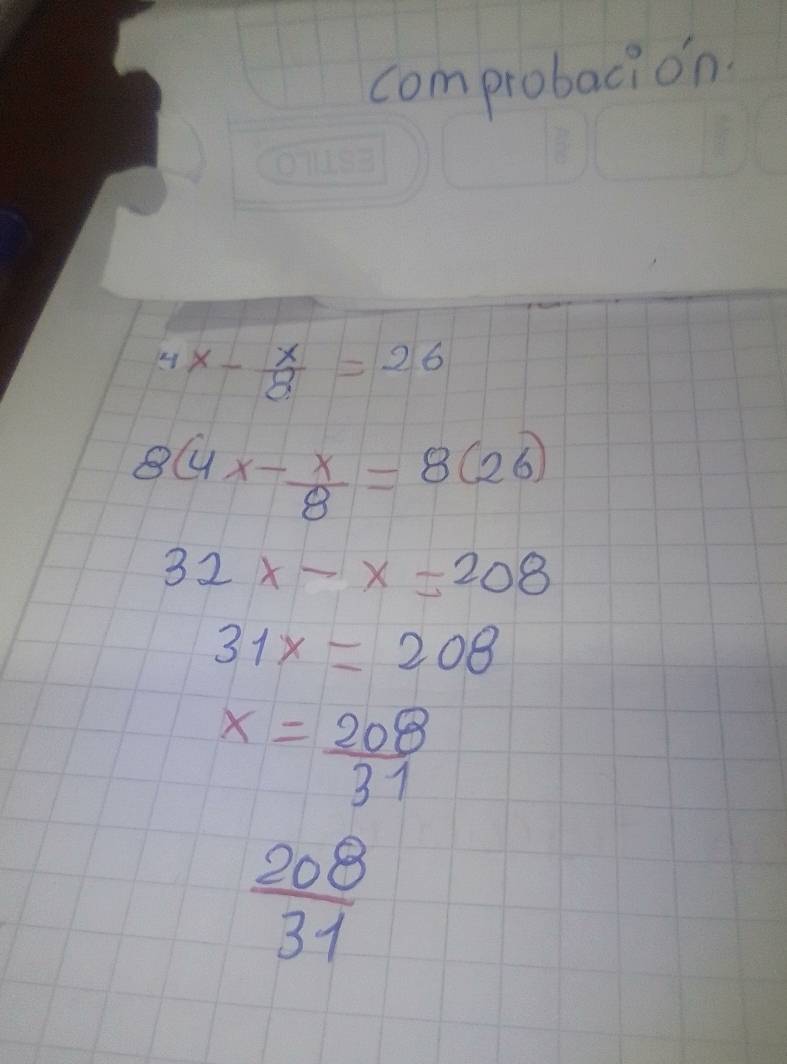 comprobación.
ESTILO
Año
4x - x/8 = 26
8(4x - x/8 = 8(26)
32x - x = 208
31x = 208
x = 208/31
208/31